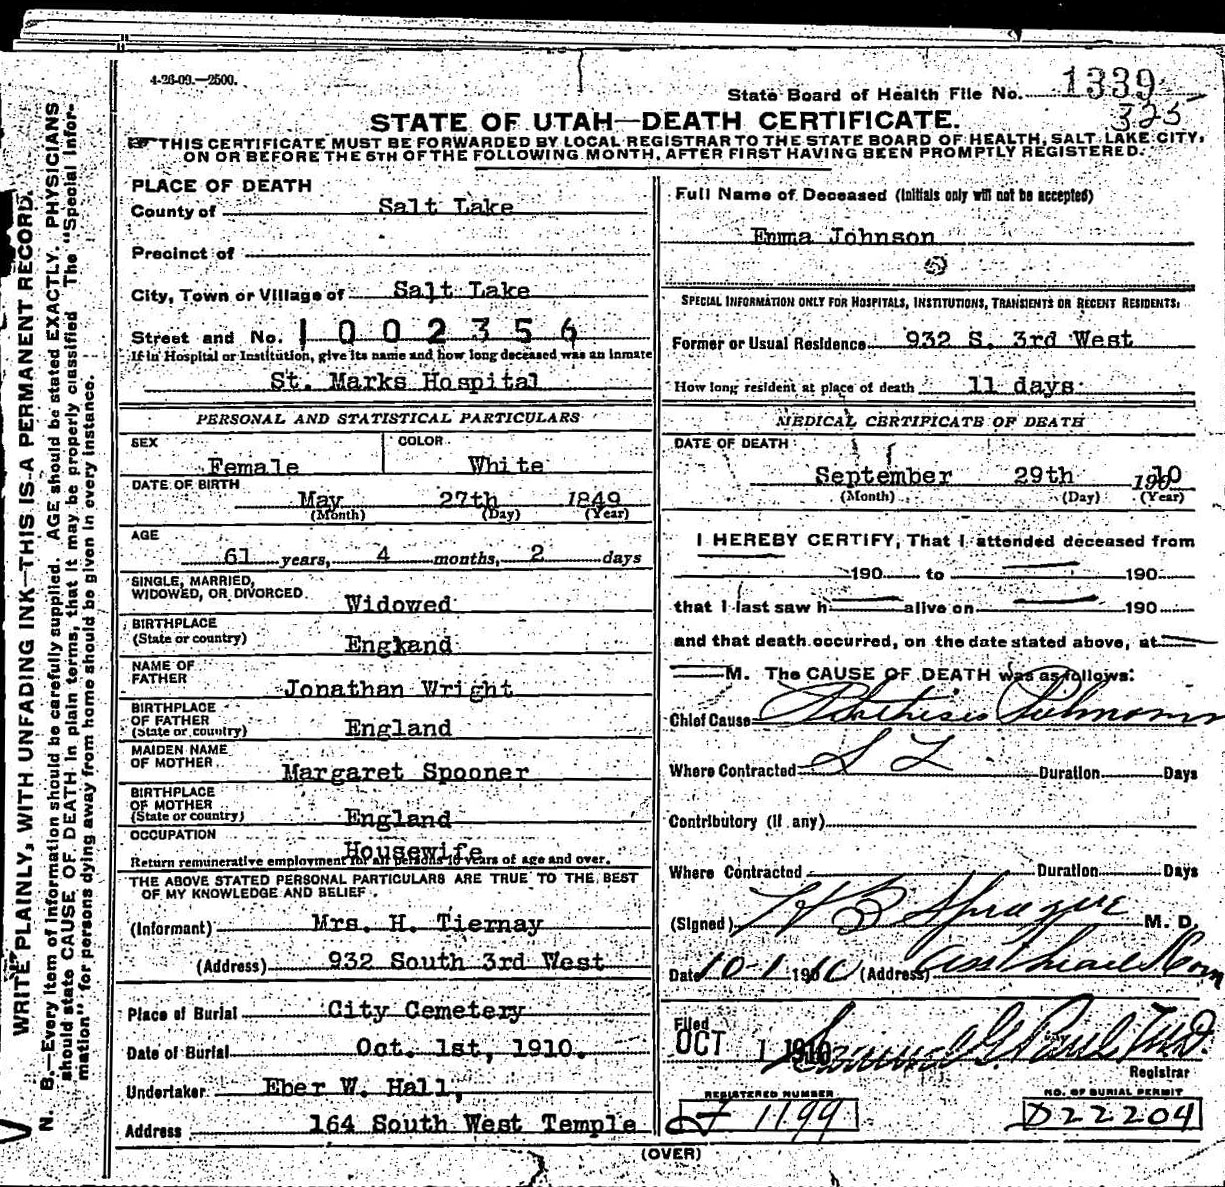 4-26-09.—2500.
State Board of Health File No. 1339
325
STATE OF UTAH—DEATH CERTIFICATE.
☞ THIS CERTIFICATE MUST BE FORWARDED BY LOCAL REGISTRAR TO THE STATE BOARD OF HEALTH, SALT LAKE CITY,
ON OR BEFORE THE 5TH OF THE FOLLOWING MONTH, AFTER FIRST HAVING BEEN PROMPTLY REGISTERED.
WRITE PLAINLY, WITH UNFADING INK—THIS IS A PERMANENT RECORD.
N. B.—Every item of information should be carefully supplied. AGE should be stated EXACTLY. PHYSICIANS
should state CAUSE OF DEATH in plain terms, that it may be properly classified. The "Special Infor-
mation" for persons dying away from home should be given in every instance.
PLACE OF DEATH
County of Salt Lake
Precinct of
City, Town or Village of Salt Lake
Street and No. 1002356
If in Hospital or Institution, give its name and how long deceased was an inmate
St. Marks Hospital
PERSONAL AND STATISTICAL PARTICULARS
SEX COLOR
Female White
DATE OF BIRTH
May 27th 1849
(Month) (Day) (Year)
AGE
61 years, 4 months, 2 days
SINGLE, MARRIED,
WIDOWED, OR DIVORCED Widowed
BIRTHPLACE
(State or country) Engkand
NAME OF
FATHER Jonathan Wright
BIRTHPLACE
OF FATHER
(State or country) England
MAIDEN NAME
OF MOTHER Margaret Spooner
BIRTHPLACE
OF MOTHER
(State or country) England
OCCUPATION Housewife
Return remunerative employment for all persons 10 years of age and over.
THE ABOVE STATED PERSONAL PARTICULARS ARE TRUE TO THE BEST
OF MY KNOWLEDGE AND BELIEF.
(Informant) Mrs. H. Tiernay
(Address) 932 South 3rd West
Place of Burial City Cemetery
Date of Burial Oct. 1st, 1910.
Undertaker Eber W. Hall,
Address 164 South West Temple
Full Name of Deceased (Initials only will not be accepted)
Emma Johnson
SPECIAL INFORMATION ONLY FOR HOSPITALS, INSTITUTIONS, TRANSIENTS OR RECENT RESIDENTS.
Former or Usual Residence 932 S. 3rd West
How long resident at place of death 11 days
MEDICAL CERTIFICATE OF DEATH
DATE OF DEATH
September 29th 1910
(Month) (Day) (Year)
I HEREBY CERTIFY, That I attended deceased from
190 to 190
that I last saw h alive on 190
and that death occurred, on the date stated above, at
M. The CAUSE OF DEATH was as follows:
Chief Cause Phthisis Pulmonary
Where Contracted S L Duration Days
Contributory (if any)
Where Contracted Duration Days
(Signed) H B Sprague M. D.
Date 10-1 1910 (Address)
Filed
OCT 1 1910 Samuel G. Paul M.D.
Registrar
REGISTERED NUMBER
J 1199
NO. OF BURIAL PERMIT
D22204
(OVER)